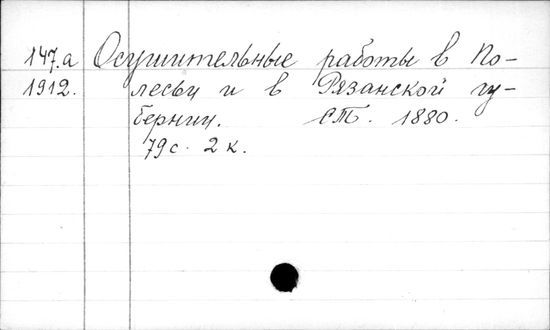 147.a Осушительные работы в По-
1912. лесьи и в Рязанской гу-
бернии. СПб. 1880.
79 с. 2 к.